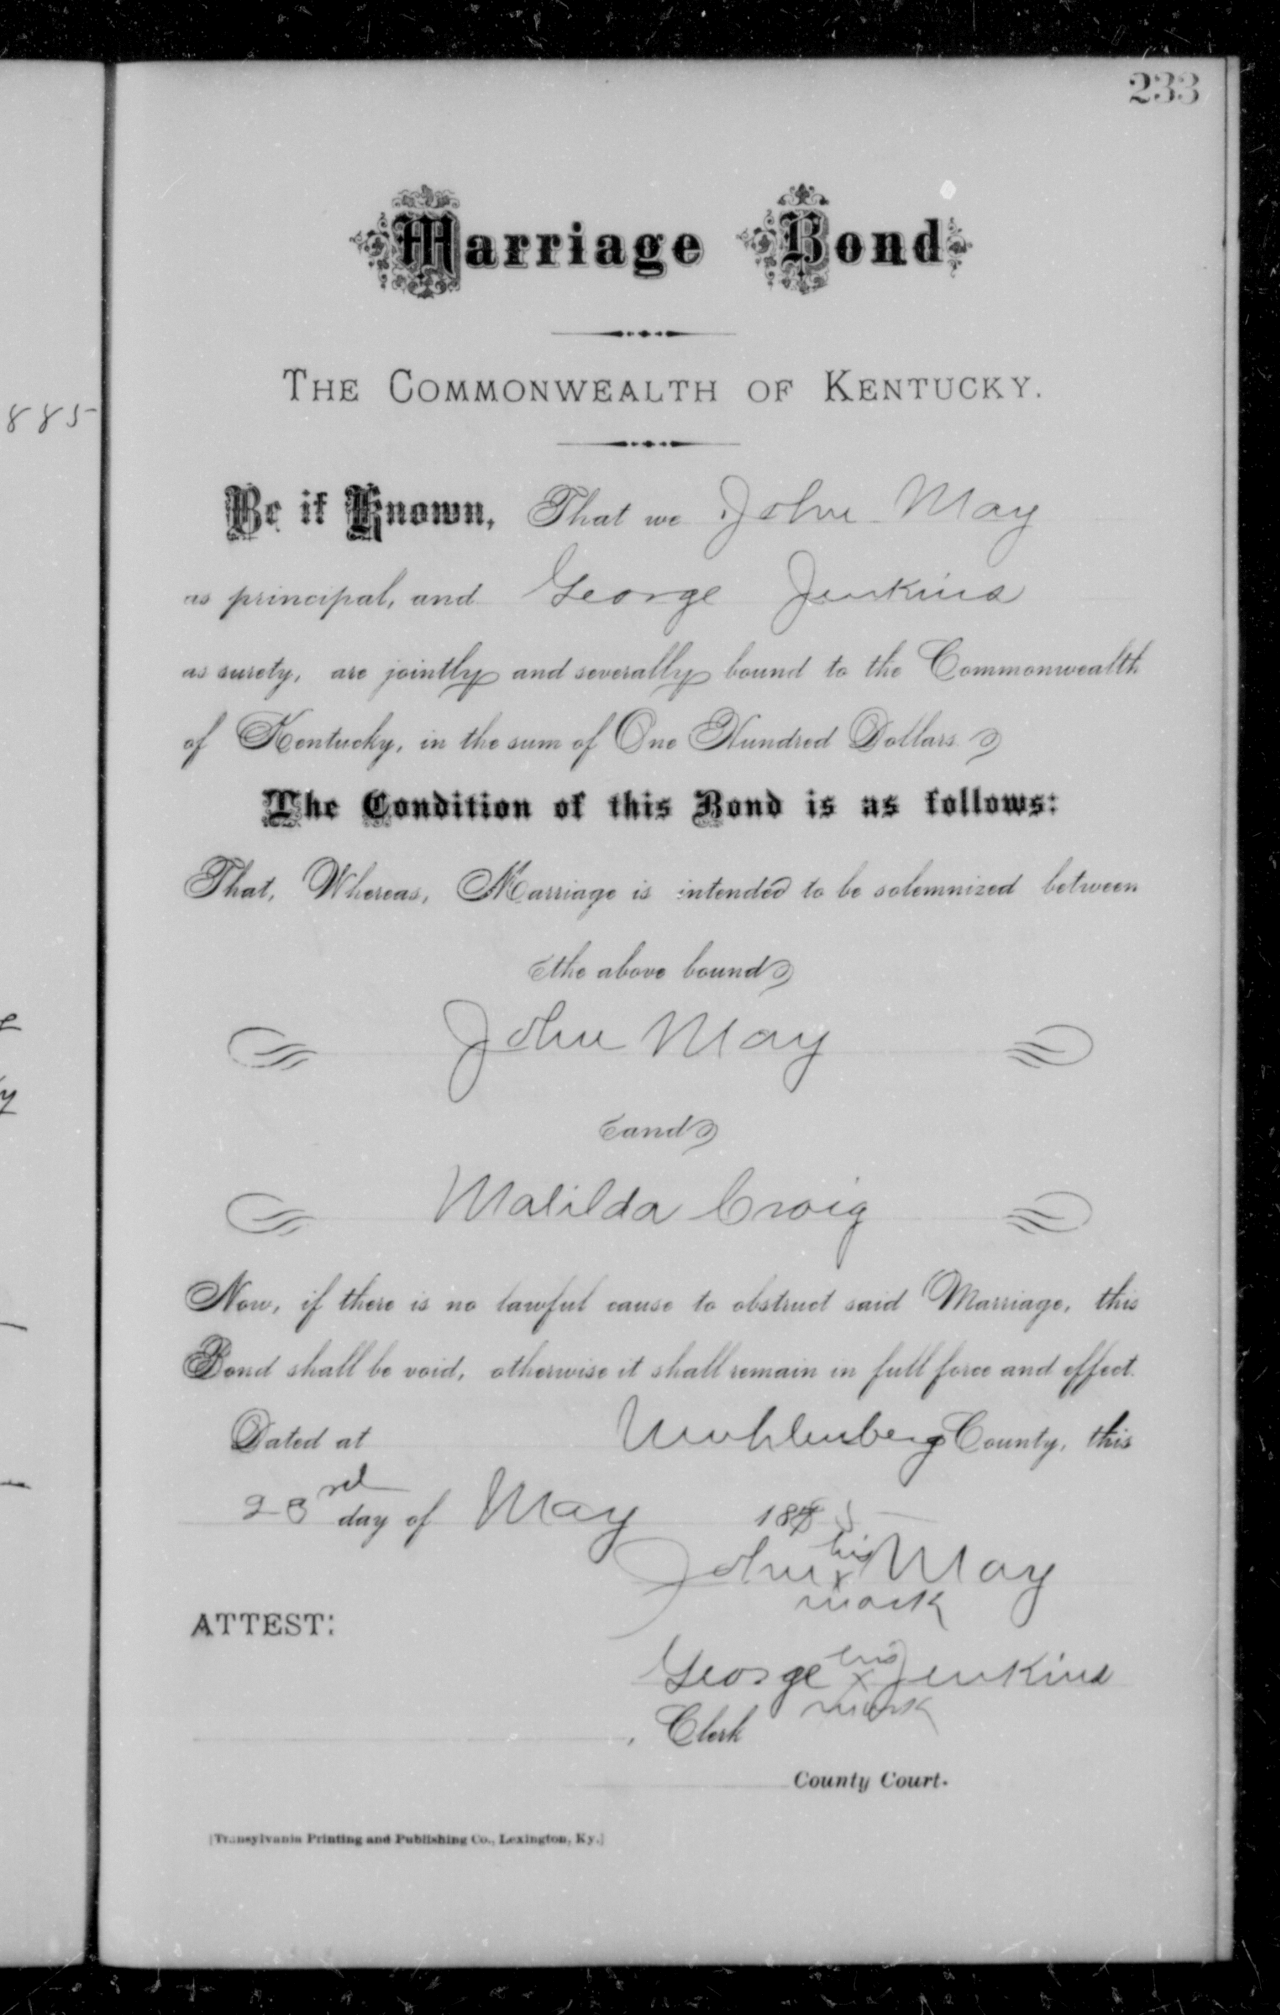 233
Marriage Bond
THE COMMONWEALTH OF KENTUCKY.
885
Be it Known, That we John May
as principal, and George Jenkins
as surety, are jointly and severally bound to the Commonwealth
of Kentucky, in the sum of One Hundred Dollars.
The Condition of this Bond is as follows:
That, Whereas, Marriage is intended to be solemnized between
the above bound
John May
and
Matilda Craig
Now, if there is no lawful cause to obstruct said Marriage, this
Bond shall be void, otherwise it shall remain in full force and effect.
Dated at Muhlenberg County, this
23rd day of May 1885
John his x mark May
ATTEST:
George his x mark Jenkins
, Clerk
County Court.
[Transylvania Printing and Publishing Co., Lexington, Ky.]